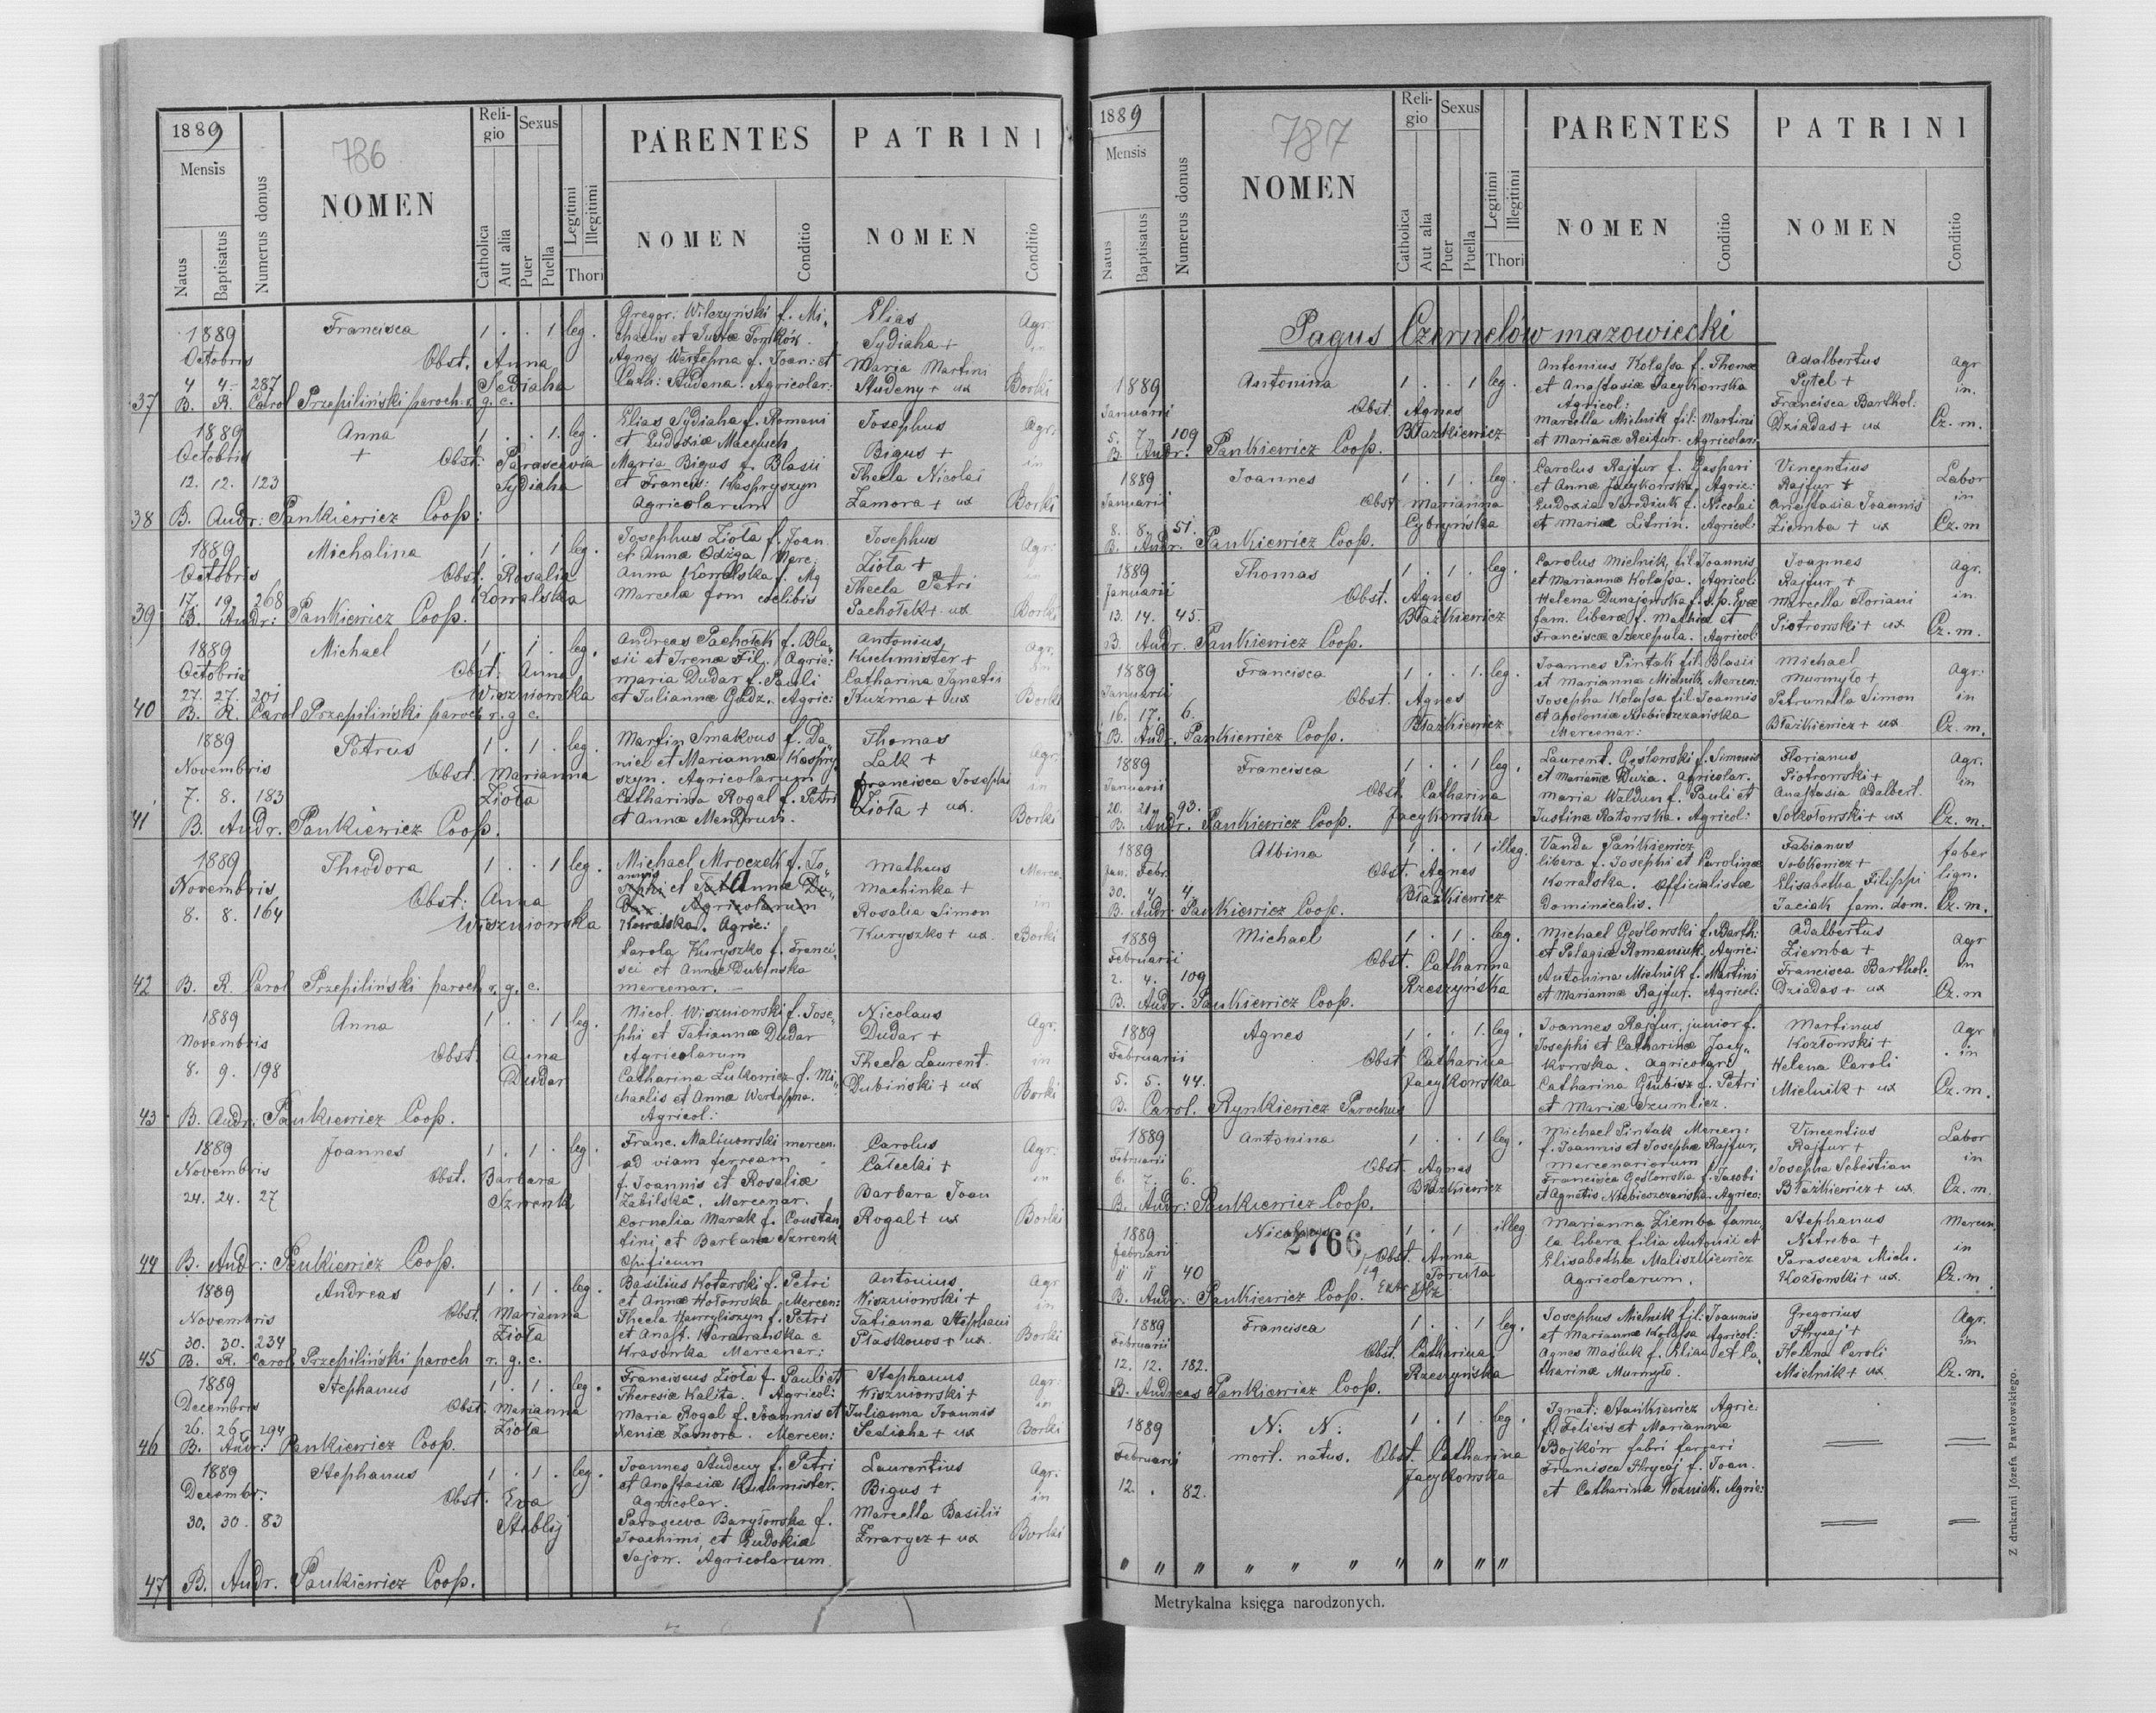 1889
786
Mensis
Natus
Baptisatus
Numerus domus
NOMEN
Religio
Catholica
Aut alia
Sexus
Puer
Puella
Legitimi
Illegitimi
Thori
PARENTES
NOMEN
Conditio
PATRINI
NOMEN
Conditio
1889 Francisca 1 . . 1 leg. Gregor. Wilczyński f. Mi- Elias Agr.
Octobris chaelis et Justæ Tomków. Sydiaha + in
Obst. Anna Agnes Wertepna f. Joan: et Maria Martini
4 4. 287 Sediaha Cath: Studena. Agricolar: Studeny + ux Borki
37 B. R. Carol Przepiliński paroch. r. g. c.
1889 Anna 1 . . 1. leg. Elias Sydiaha f. Romani Josephus Agr.
Octobris + et Eudoxiæ Maceluch Bigus + in
Obst. Parascevia Maria Bigus f. Blasii Thecla Nicolai
12. 12. 123 Sydiaha et Francis: Kaspryszyn Zamora + ux Borki
Agricolarum
38 B. Andr: Pankiewicz Coop:
1889 Michalina 1 . . 1 leg. Josephus Ziola f. Joan Josephus Agr.
Octobris et Annæ Odzga, Merc. Ziola + in
Obst. Rosalia Anna Kowalska f. Mg Thecla Petri
17. 19. 268 Kowalska Marcelæ fom coelibis Pachołek + ux Borki
39 B. Andr: Pankiewicz Coop.
1889 Michael 1 . 1 . leg. Andreas Pachołek f. Bla- Antonius Agr.
Octobris sii et Irenæ Fil. Agric: Kuchmister + in
Obst: Anna Maria Dudar f. Pauli Catharina Ignatii
27. 27. 201 Wiszniowska et Juliannæ Gadz. Agric: Kuźma + ux Borki
40 B. R. Carol Przepiliński paroch r. g. c.
1889 Petrus 1 . 1 . leg. Martin Smakous f. Da- Thomas Agr.
Novembris niel et Mariannæ Kaspry- Lak + in
Obst. Marianna szyn. Agricolarum Francisca Josephi
7. 8. 183 Ziola Catharina Rogal f. Petri Ziola + ux. Borki
et Annæ Mendrun.
41 B. Andr. Pankiewicz Coop.
1889 Theodora 1 . . 1 leg. Michael Mroczek f. Jo- Matheus Merce.
Novembris annis et Annæ Machinka + in
Obst: Anna Agricolarum Rosalia Simon
8. 8. 164 Wiszniowska Kowalska. Agric: Kuryszko + ux. Borki
Carola Kuryszko f. Franci-
sci et Annæ Dubinska
mercenar.
42 B. R. Carol Przepiliński paroch r. g. c.
1889 Anna 1 . . 1 leg. Nicol. Wiszniowski f. Jose- Nicolaus Agr.
Novembris phi et Tatiannæ Dudar Dudar + in
Obst. Anna Agricolarum Thecla Laurent.
8. 9. 198 Dudar Catharina Lulkowicz f. Mi- Dubiński + ux Borki
chaelis et Annæ Wertepna.
Agricol:
43 B. Andr: Pankiewicz Coop.
1889 Joannes 1 . 1 . leg. Franc. Malinowski mercen. Carolus Agr.
Novembris ad viam ferream Całecki + in
Obst. Barbara f. Joannis et Rosaliæ Barbara Joan
24. 24. 27 Szwenk Zabilska. Mercenar. Rogal + ux Borki
Cornelia Marak f. Constan
tini et Barbaræ Szwenk
Opificum
44 B. Andr: Pankiewicz Coop.
1889 Andreas 1 . 1 . leg. Basilius Kotarski f. Petri Antonius Agr
Novembris et Annæ Hołowska, Mercen: Wiszniowski + in
Obst. Marianna Thecla Hawryliszyn f. Petri Tatianna Stephani
30. 30. 234 Ziola et Anast. Kararanska e Płaskonos + ux. Borki
Krasowka Mercenar:
45 B. R. Carol Przepiliński paroch r. g. c.
1889 Stephanus 1 . 1 . leg. Franciscus Ziola f. Pauli et Stephanus Agr.
Decembris Theresiæ Kalita. Agricol: Wiszniowski + in
Obst. Marianna Maria Rogal f. Joannis et Julianna Joannis
26. 26. 294 Ziola Xeniæ Zamora. Mercen: Sediaha + ux Borki
46 B. Andr: Pankiewicz Coop.
1889 Stephanus 1 . 1 . leg. Joannes Studeny f. Petri Laurentius Agr.
Decembr. et Anastasiæ Kuchmister. Bigus + in
Obst. Eva Agricolar. Marcella Basilii
30. 30. 83 Stoblij Parasceva Baryłowska f. Zwarycz + ux Borki
Joachimi et Eudokiæ
Sajow. Agricolarum
47 B. Andr. Pankiewicz Coop.
1889
787
Mensis
Natus
Baptisatus
Numerus domus
NOMEN
Religio
Catholica
Aut alia
Sexus
Puer
Puella
Legitimi
Illegitimi
Thori
PARENTES
NOMEN
Conditio
PATRINI
NOMEN
Conditio
Pagus Czernelów mazowiecki
1889 Antonina 1 . . 1 leg. Antonius Kolassa f. Thomæ Adalbertus Agr
Januarii et Anastasiæ Jacykowska Pytel + in.
Obst. Agnes Agricol: Francisca Barthol:
5. 7. 109 Błażkiewicz Marcella Mielnik fil: Martini Dziadas + ux Cz. m.
et Mariañæ Reifur. Agricolar:
B. Andr. Pankiewicz Coop.
1889 Joannes 1 . 1 . leg. Carolus Rajfur f. Gaspari Vincentius Labor
Januarii et Annæ Jacykowska, Agric: Rajfur + in
Obst Marianna Eudoxia Narediuk f. Nicolai Anastasia Joannis
8. 8. 51. Cybryńska et Mariæ Litwin. Agricol: Ziemba + ux Cz. m
B. Andr. Pankiewicz Coop.
1889 Thomas 1 . 1 . leg. Carolus Mielnik, fil: Joannis Joannes Agr.
Januarii et Mariannæ Kolassa. Agricol: Rajfur + in
Obst. Agnes Helena Dunajewska f. s. p. Evæ Marcella Floriani
13. 14. 45. Błażkiewicz fam. liberæ f. Mathiæ et Piotrowski + ux Cz. m.
Franciscæ Szczepula. Agricol:
B. Andr. Pankiewicz Coop.
1889 Francisca 1 . . 1. leg. Joannes Pintak fil: Blasii Michael Agr:
Januarii et Mariannæ Mielnik, Mercen: Murmyło + in
Obst. Agnes Josepha Kolassa fil: Joannis Petrunella Simon
16. 17. 6. Błażkiewicz et Apoloniæ Niebieszczańska Błażkiewicz + ux Cz. m.
Mercenar:
B. Andr. Pankiewicz Coop.
1889 Francisca 1 . . 1 leg. Laurent. Gęślowski f. Simonis Florianus Agr.
Januarii et Mariañæ Duża. Agricolar. Piotrowski + in
Obst. Catharina Maria Waldun f. Pauli et Anastasia Adalbert.
20. 21. 93. Jacykowska Justinæ Ratowska. Agricol: Sokołowski + ux Cz. m.
B. Andr. Pankiewicz Coop.
1889 Albina 1 . . 1 illeg. Vanda Pańkiewicz Fabianus faber
Jan. Febr. libera f. Josephi et Carolinæ Sobkowicz + lign.
Obst. Agnes Kowalska. Officialistæ Elisabetha Filippi
30. 4. 4. Błażkiewicz Dominicalis. Jaciak fam. dom. Cz. m.
B. Andr. Pankiewicz Coop.
1889 Michael 1 . 1 . leg. Michael Gęślowski f. Barth: Adalbertus Agr
Februarii et Pelagiæ Romaniuk. Agric: Ziemba + in
Obst. Catharina Antonina Mielnik f. Martini Francisca Barthol.
2. 4. 109 Rzeszyńska et Mariannæ Rajfur. Agricol: Dziadas + ux Cz. m
B. Andr. Pankiewicz Coop.
1889 Agnes 1 . . 1. leg. Joannes Rajfur, junior f. Martinus Agr
Februarii Josephi et Catharinæ Jacy- Kozłowski + in
Obst Catharina kowska. Agricolar: Helena Caroli
5. 5. 44. Jacykowska Catharina Głubisz f. Petri Mielnik + ux Cz. m.
et Mariæ Szumlicz.
B. Carol. Rynkiewicz Parochus
1889 Antonina 1 . . 1 leg. Michael Pintak Mercen: Vincentius Labor
Februarii f. Joannis et Josephæ Rajfur, Rajfur + in
Obst. Agnes mercenariorum Josepha Sebestian
6. 7. 6. Błażkiewicz Francisca Gęślowska f. Jacobi Błażkiewicz + ux. Cz. m.
et Agnetis Niebieszczańska. Agric:
B. Andr: Pankiewicz Coop.
1889 Nicolaus 1 . 1 . illeg Marianna Ziemba famu- Stephanus Mercen.
2766
Februarii la libera filia Antonii et Natreba + in
Obst. Anna Elisabethæ Maliszkiewicz Parasceva Mich.
11 11 40 Toruta Agricolarum. Kozłowski + ux. Cz. m.
B. Andr. Pankiewicz Coop.
1889 Francisca 1 . . 1 leg. Josephus Mielnik fil: Joannis Gregorius Agr.
Februarii et Mariannæ Kolassa Agricol: Hrycaj + in
Obst. Catharina Agnes Maśluk f. Eliæ et Ca- Helena Caroli
12. 12. 182. Rzeszyńska tharinæ Murmyło. Mielnik + ux Cz. m.
B. Andreas Pankiewicz Coop.
1889 N: N: 1 . 1 . leg. Ignat: Stańkiewicz Agric.
f. Felicis et Mariannæ
Februarii mort. natus. Obst. Catharina Bojków fabri ferrari
Jacykowska Francisca Hrycaj f. Joan.
12. . 82. et Catharina Wozniak. Agric:
" " " " " " " " " "
Metrykalna księga narodzonych.
Z drukarni Józefa Pawłowskiego.